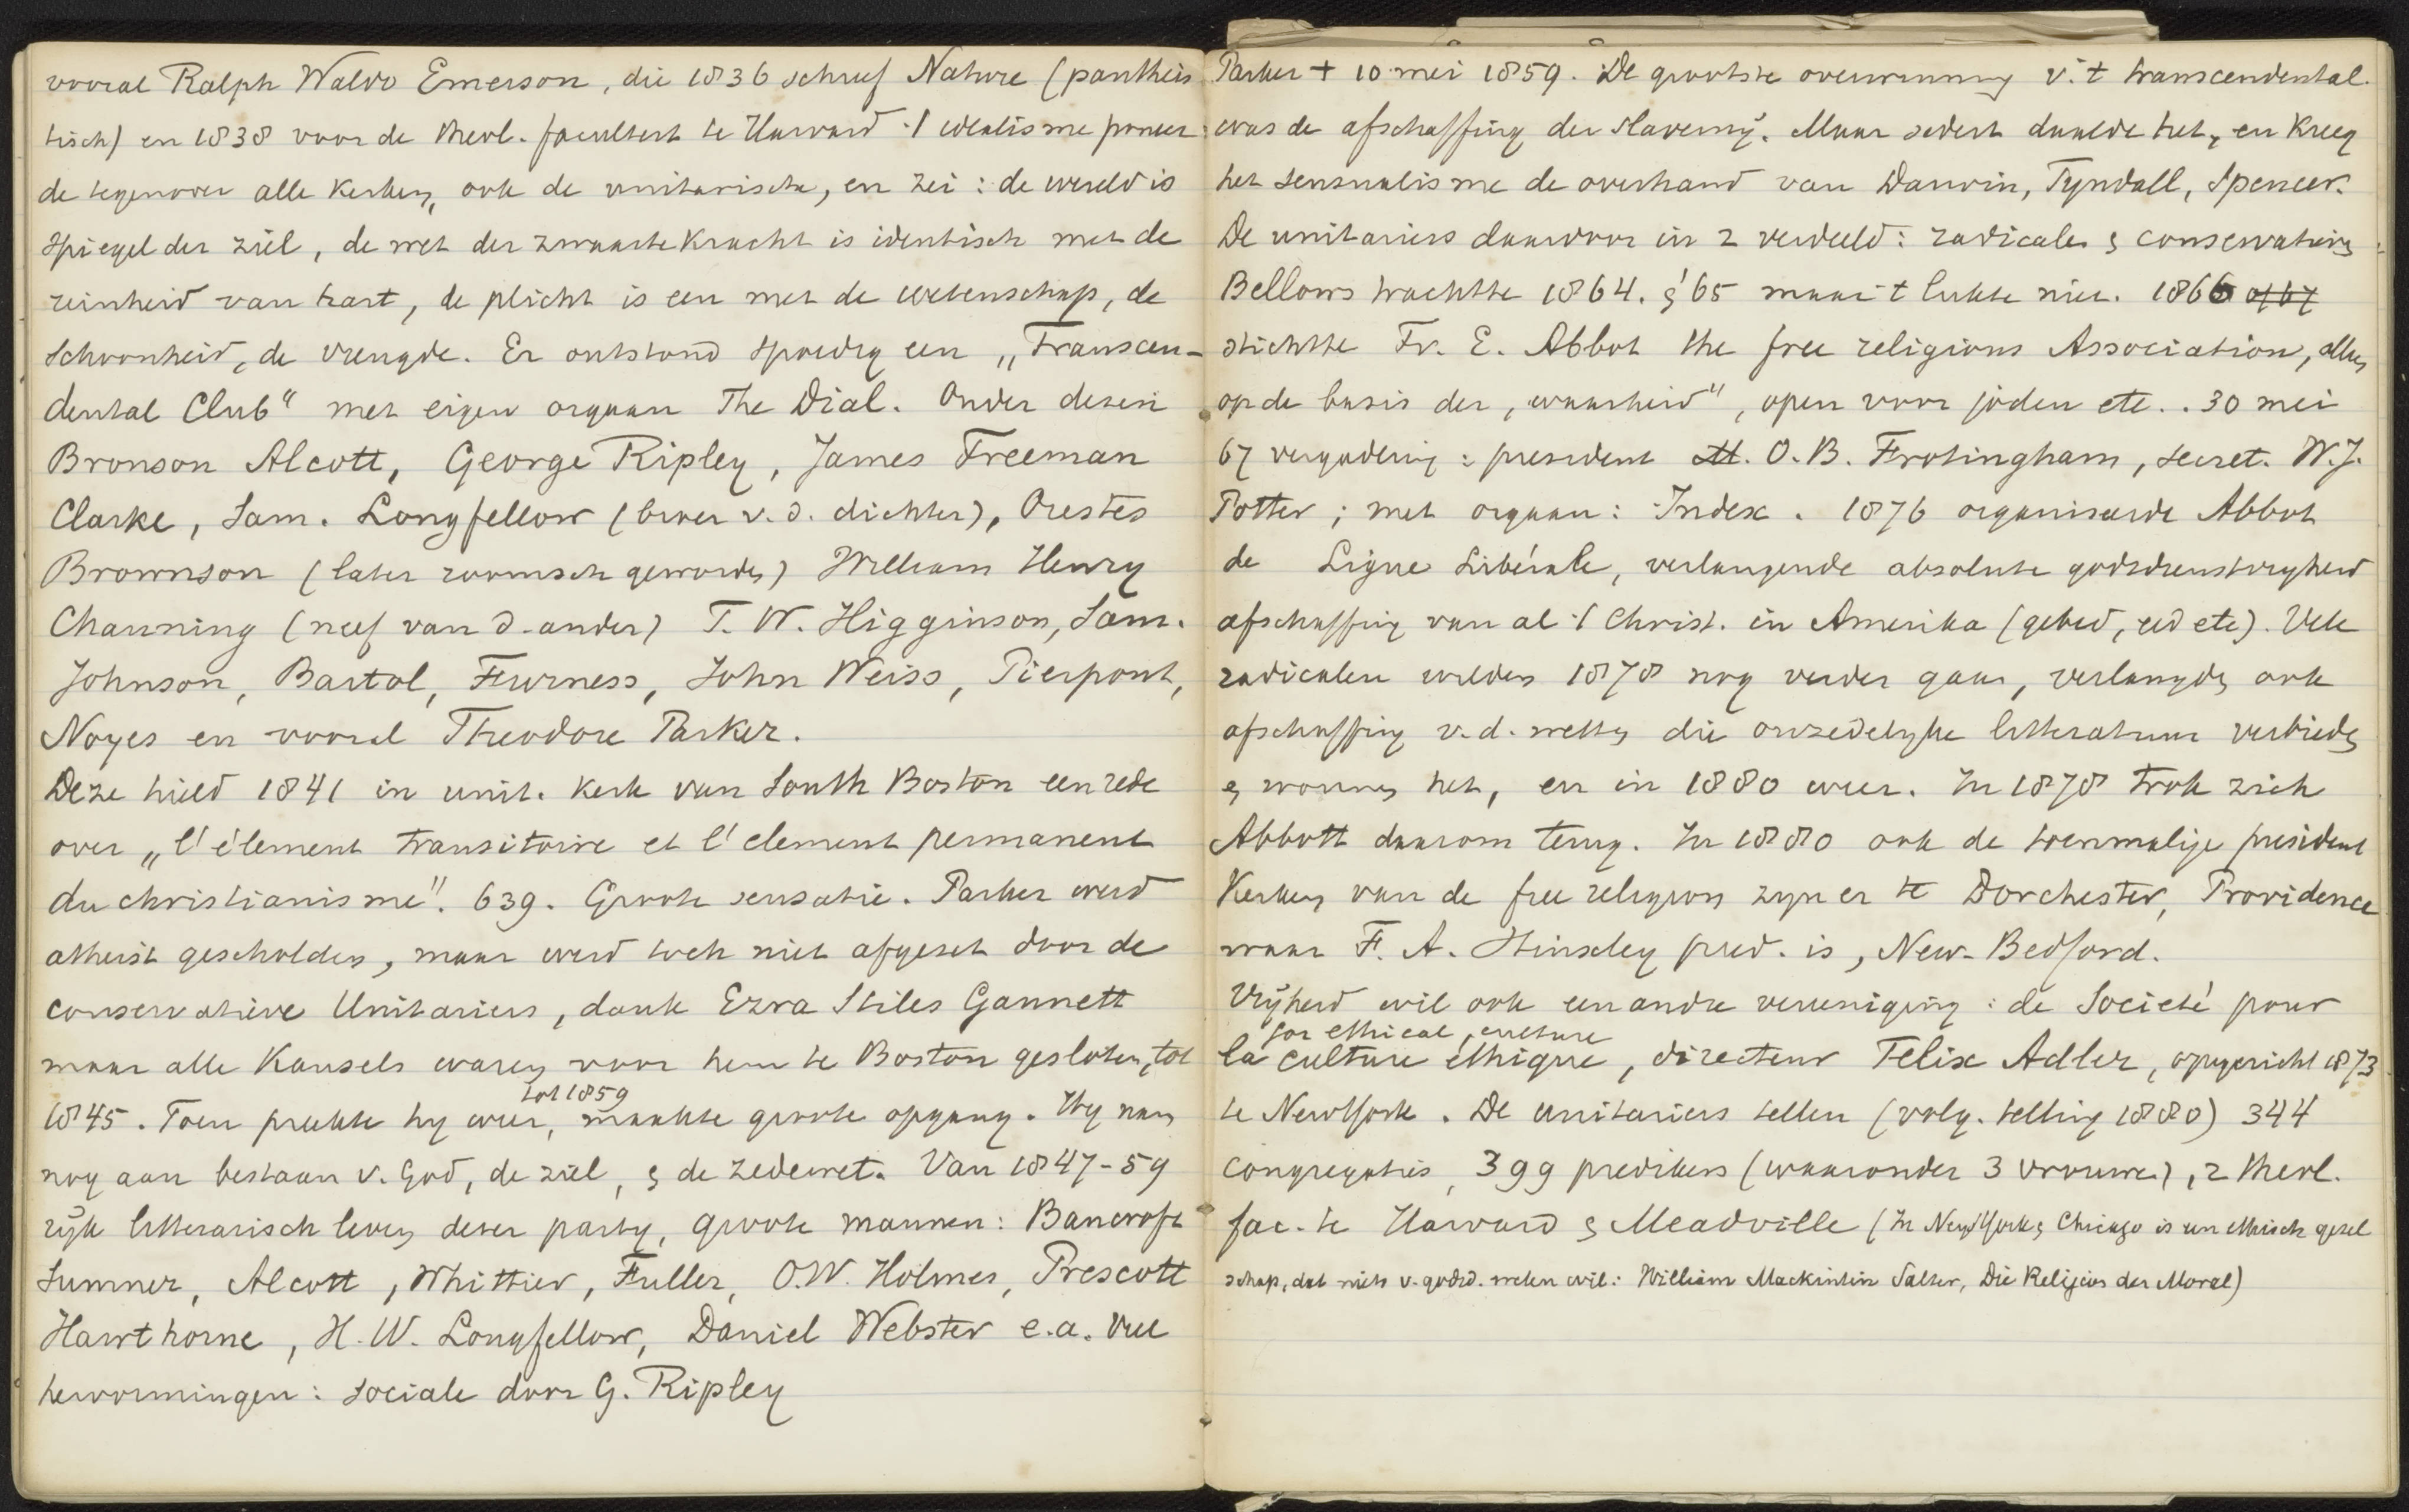 vooral Ralph Waldo Emerson, die 1836 schreef Nature (pantheis
tisch) en 1838 voor de theol. faculteit te Harvard 't idealisme poneer
de tegenover alle kerken, ook de unitarische, en zei: de wereld is
spiegel der ziel, de wet der zwaartekracht is identisch met de
reinheid van hart, de plicht is een met de wetenschap, de
schoonheid, de vreugde. Er ontstond spoedig een „Transcen-
dental Club" met eigen orgaan The Dial. Onder dezen
Bronson Alcott, George Ripley, James Freeman
Clarke, Sam. Longfellow (broer v. d. dichter), Orestes
Brownson (later roomsch geworden) William Henry
Channing (neef van d. ander) T. W. Higginson, Sam.
Johnson, Bartol, Furness, John Weiss, Pierpont,
Noyes en vooral Theodore Parker.
Deze hield 1841 in unit. kerk van South Boston een rede
over „l'élement transitoire et l'element permanent
du christianisme". 639. Groote sensatie. Parker werd
atheist gescholden, maar werd toch niet afgezet door de
conservatieve Unitariers, dank Ezra Stiles Gannett
maar alle kansels waren voor hem te Boston gesloten, tot
1845. Toen preekte hy weer, tot 1859 maakte groote opgang. Hy nam
nog aan bestaan v. God, de ziel, & de zedewet. Van 1847-59
rijk litterarisch leven dezer party, groote mannen: Bancroft
Sumner, Alcott, Whittier, Fuller, O.W. Holmes, Prescott
Hawthorne, H. W. Longfellow, Daniel Webster e.a. Veel
hervormingen: sociale door G. Ripley
Parker + 10 mei 1859. De grootste overwinning v. 't transcendental.
was de afschaffing der slaverny. Maar sedert daalde het, en kreeg
het sensualisme de overhand van Darwin, Tyndall, Spencer.
De unitariers daardoor in 2 verdeeld: radicalen & conservatieven
Bellows trachtte 1864. & '65 maar 't lukte niet. 1866 of 67
stichtte Fr. E. Abbot the free religious Association, alleen
op de basis der „waarheid", open voor joden etc.. 30 mei
67 vergadering: president O. B. Frotingham, secret. W. J.
Potter; met orgaan: Index. 1876 organiseerde Abbot
de Ligue Libérale, verlangende absolute godsdienstvryheid
afschaffing van al 't Christ. in Amerika (gebed, eed etc). Vele
radicalen wilden 1878 nog verder gaan, verlangden ook
afschaffing v. d. wetten die onzedelyke litteratuur verbieden
& wonnen het, en in 1880 weer. In 1878 trok zich
Abbott daarom terug. In 1880 ook de toenmalige president
Kerken van de free religion zyn er te Dorchester, Providence
waar F. A. Hinscley pred. is, New-Bedford.
Vrijheid wil ook een andre vereeniging: de Societé pour
for ethical culture
la culture ethique, directeur Felix Adler, opgericht 1873
te NewYork. De unitariers tellen (volg. telling 1880) 344
congregaties, 399 predikers (waaronder 3 vrouwen), 2 theol.
fac. te Harvard & Meadville (In NewYork & Chicago is een ethisch gezel
schap, dat niets v. godsd. weten wil: William Mackintire Salter, Die Religion der Moral)